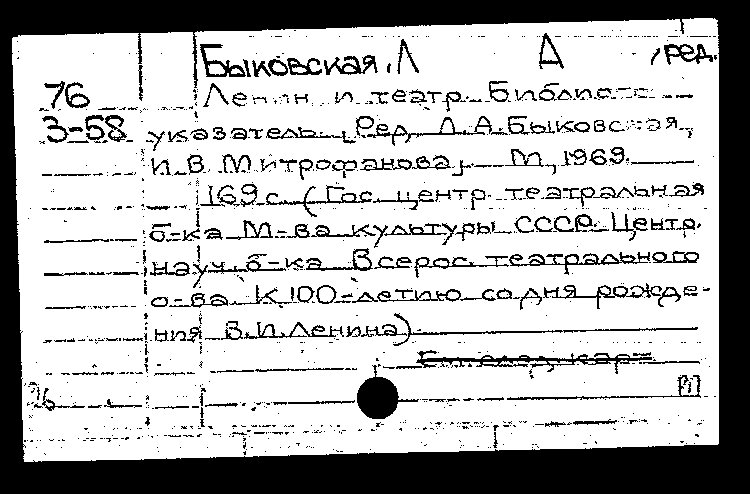 Быковская, Л А , ред.
76 Ленин и театр. Библиогр.
3-58 указатель. [Ред. Л.А.Быковская,
И.В. Митрофанова]. М., 1969.
169 с. (Гос. центр. театральная
б-ка М-ва культуры СССР. Центр.
науч. б-ка Всерос. театрального
о-ва. К 100-летию со дня рожде-
ния В.И.Ленина)
26